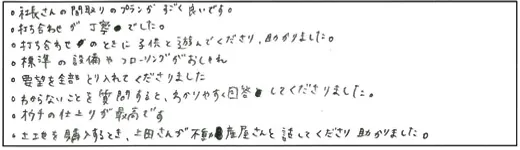 ○社長さんの間取りのプランがすごく良いです。
○打ち合わせが丁寧でした。
○打ち合わせのときに子供と遊んでくださり、助かりました。
○標準の設備やフローリングがおしゃれ
○要望を全部とり入れてくださりました
○わからないことを質問すると、わかりやすく回答してくださりました。
○オウチの仕上りが最高です
○土地を購入するとき、上田さんが不動産屋さんと話してくださり助かりました。